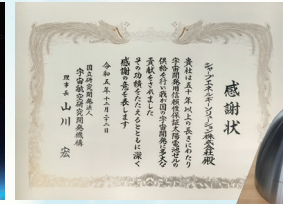 感謝状
シャープエネルギーソリューション株式会社殿
貴社は五十年以上の長きにわたり
宇宙開発用信頼性保証太陽電池セルの
供給を行い我が国の宇宙開発に多大な
貢献をされました
その功績をたたえるとともに深く
感謝の意を表します
令和五年十二月二十二日
国立研究開発法人
宇宙航空研究開発機構
理事長 山川 宏